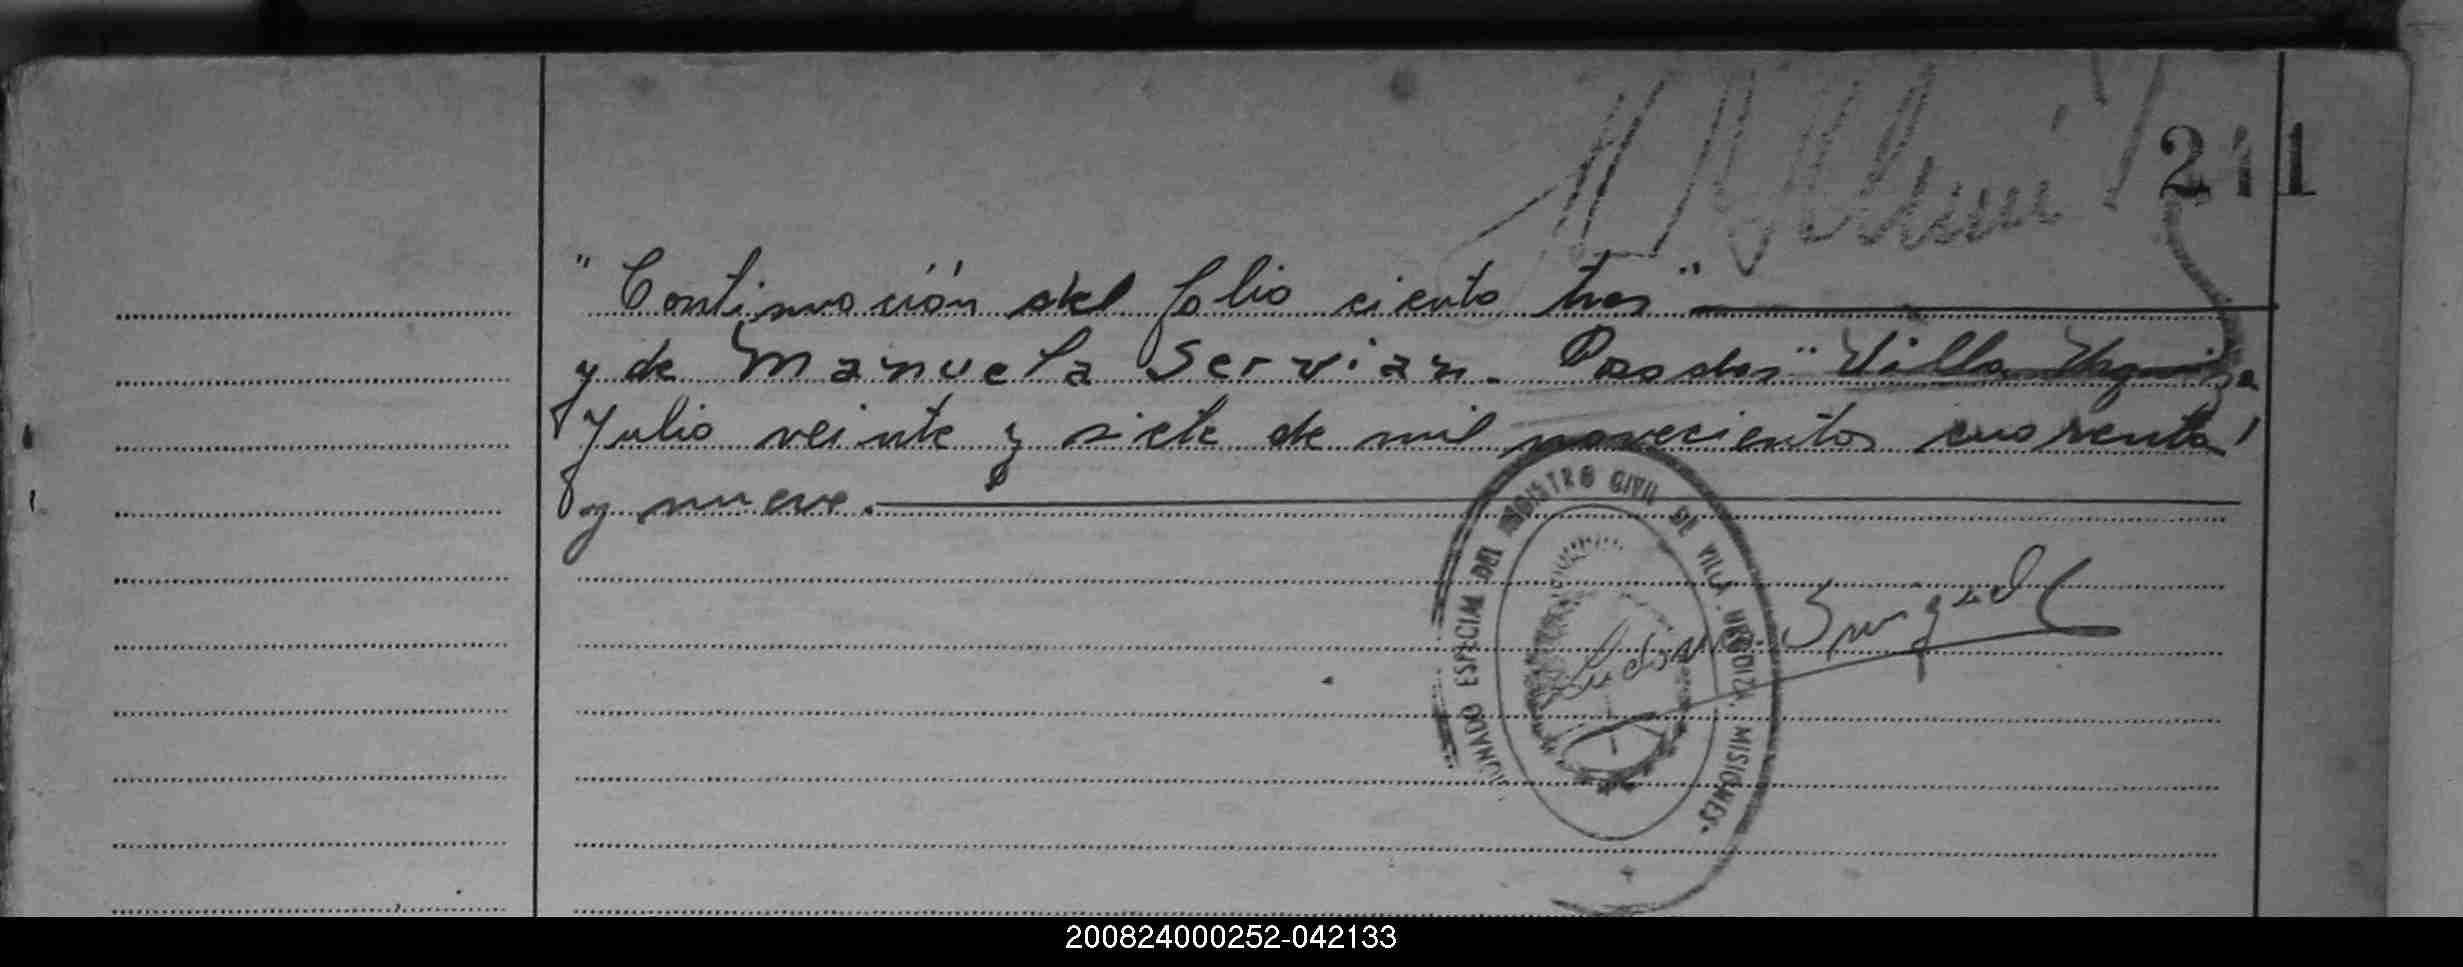 211
"Continuación del folio ciento tres"
y de Manuela Servian. Posadas "Villa Urquiza
Julio veinte y siete de mil novecientos cuarenta
y nueve.
ESPECIAL DEL REGISTRO CIVIL DE VILLA URQUIZA, MISIONES.
200824000252-042133